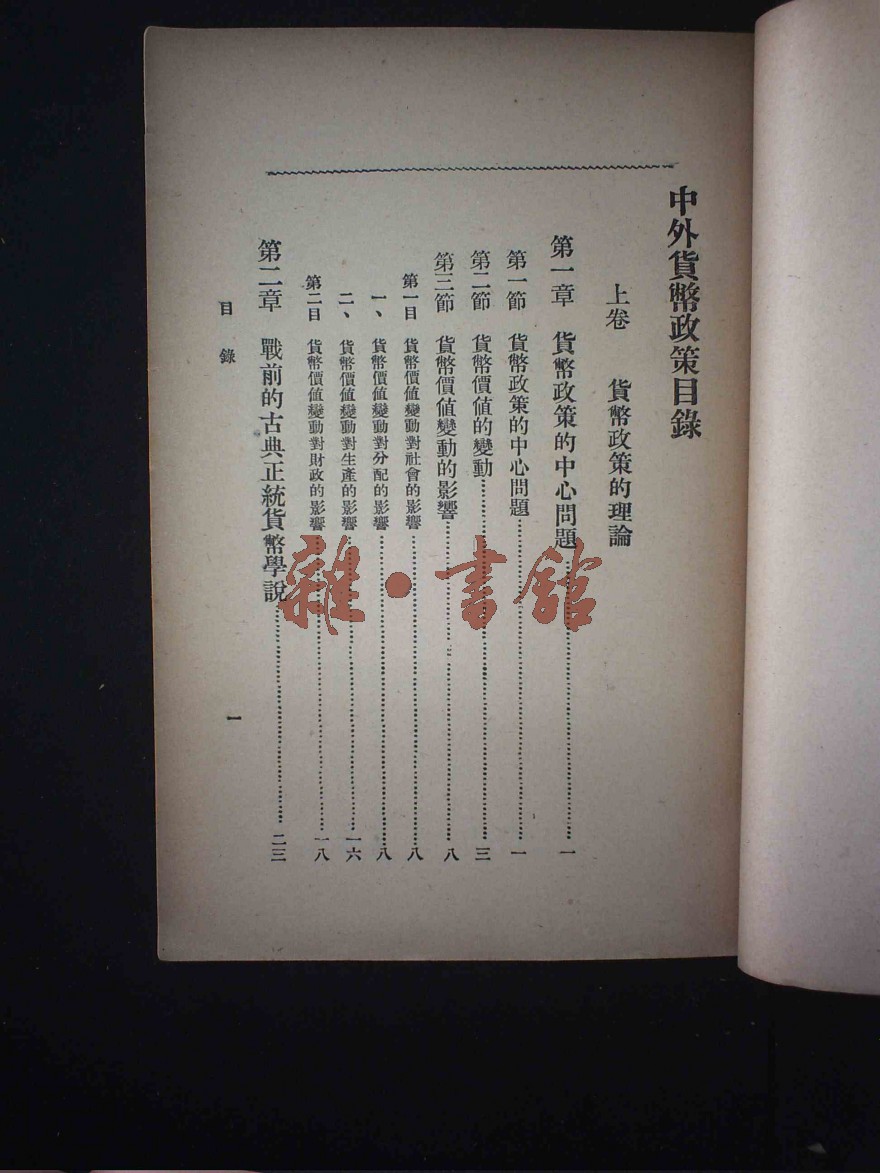 中外貨幣政策目錄
上卷　貨幣政策的理論
第一章　貨幣政策的中心問題……一
第一節　貨幣政策的中心問題……一
第二節　貨幣價值的變動……三
第三節　貨幣價值變動的影響……八
第一目　貨幣價値變動對社會的影響……八
一、　貨幣價値變動對分配的影響……八
二、　貨幣價値變動對生產的影響……一六
第二目　貨幣價値變動對財政的影響……一八
第二章　戰前的古典正統貨幣學說……二三
目錄
一
雜·書館